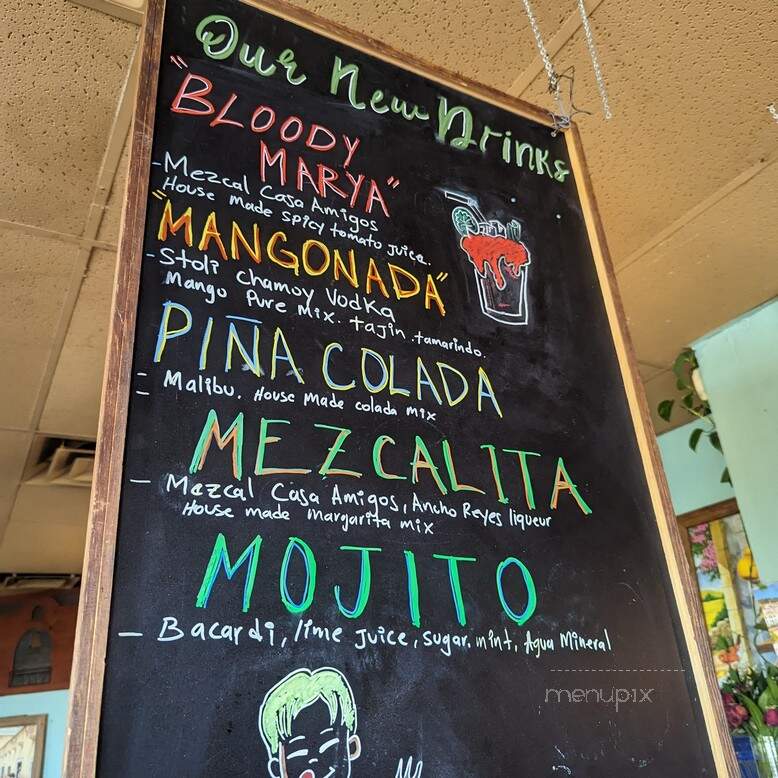 Our New Drinks
"BLOODY
MARYA"
- Mezcal Casa Amigos
House made spicy tomato juice.
"MANGONADA"
- Stoli Chamoy Vodka
Mango Pure Mix. tajin .tamarindo.
PIÑA COLADA
= Malibu. House Made colada mix
MEZCALITA
- Mezcal Casa Amigos, Ancho Reyes liqueur
House made margarita mix
MOJITO
- Bacardi, lime juice, sugar. mint, Agua Mineral
menupix